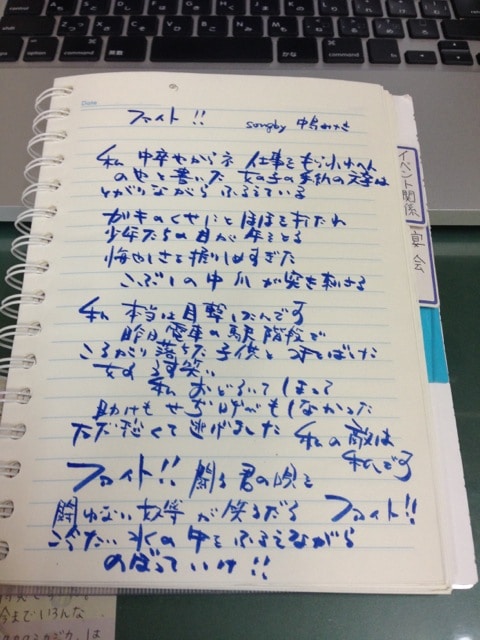 英数
かな
command
option
Date
ファイト!!
songby 中島みゆき
私 中卒やからネ 仕事をもらわれへん
のやと書いた 女の子の手紙の文字は
とがりながらふるえている
ガキのくせにとほほを打たれ
少年たちの目が年をとる
悔しさを握りしめすぎた
こぶしの中 爪が突き刺さる
私 本当は目撃したんです
昨日電車の駅 階段で
ころがり落ちた子供と つきとばした
女の薄笑い
私 おどろいてしまって
助けもせず さけびもしなかった
ただ恐くて逃げました 私の敵は
私です
ファイト!! 闘う君の唄を
闘わない奴等が笑うだろう ファイト!!
冷たい水の中をふるえながら
のぼっていけ!!
イベント関係
宴会
今まで いろんな